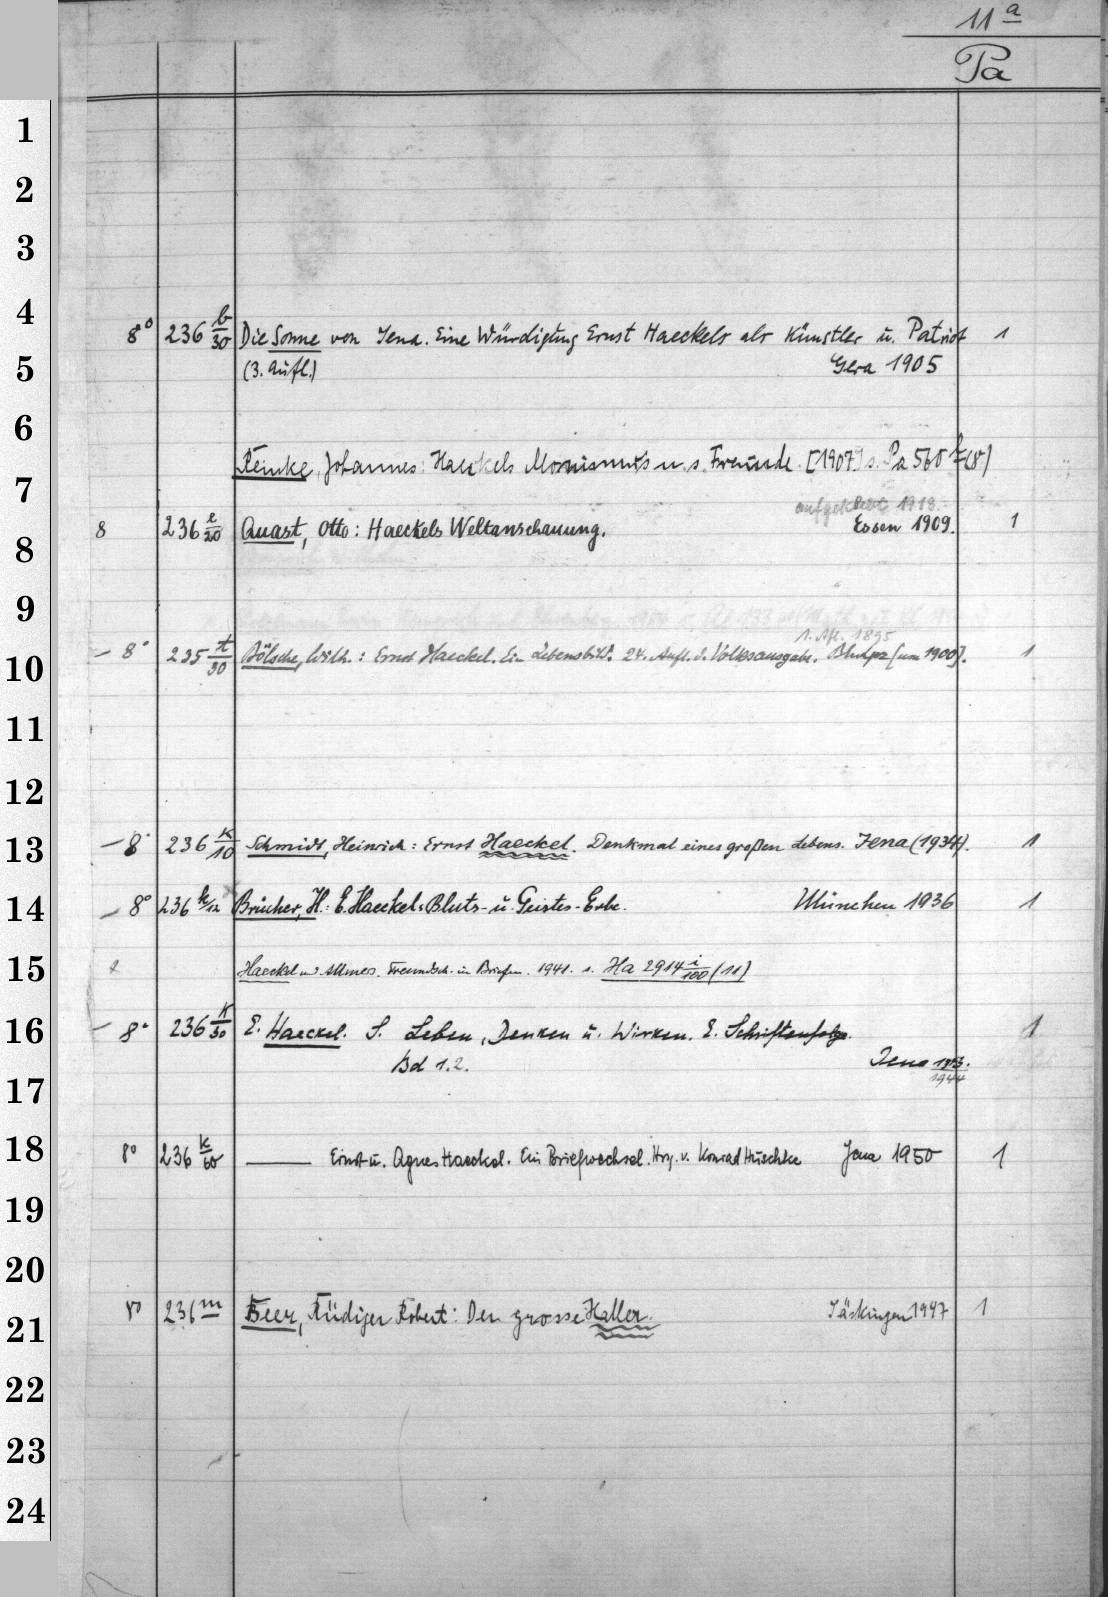 11 a
Pa
1
2
3
4
8° 236 b/30 Die Sonne von Jena. Eine Würdigung Ernst Haeckels als Künstler u. Patriot 1
5
(3. Aufl.) Gera 1905
6
Reinke, Johannes: Haeckels Monismus u. s. Freunde. [1907] s. Pa 560 (8)
7
1913.
8 236 e/20 Quast, Otto: Haeckels Weltanschauung. Essen 1909. 1
8
9
1. Afl. 1895
– 8° 235 t/30 Bölsche, Wilh.: Ernst Haeckel. Ein Lebensbild. 24. Aufl. d. Volksausgabe. [um 1900]. 1
10
11
12
13
– 8° 236 k/10 Schmidt, Heinrich: Ernst Haeckel. Denkmal eines großen Lebens. Jena (1934). 1
14
– 8° 236 k/12 Brücher, H.: E. Haeckels Bluts- u. Geistes-Erbe. München 1936 1
15
Haeckel u. Allmers. Freundsch. in Briefen. 1941. s. Ha 2914 i/100 (11)
16
– 8° 236 k/30 E. Haeckel. S. Leben, Denken u. Wirken. E. Schriftenfolge. 1
Bd 1.2. Jena 1943.
1944
17
18
8° 236 k/60 —— Ernst u. Agnes Haeckel. Ein Briefwechsel. Hrg. v. Konrad Huschke Jena 1950 1
19
20
8° 236 m Beer, Rüdiger Robert: Der grosse Haller. Säckingen 1947 1
21
22
23
24